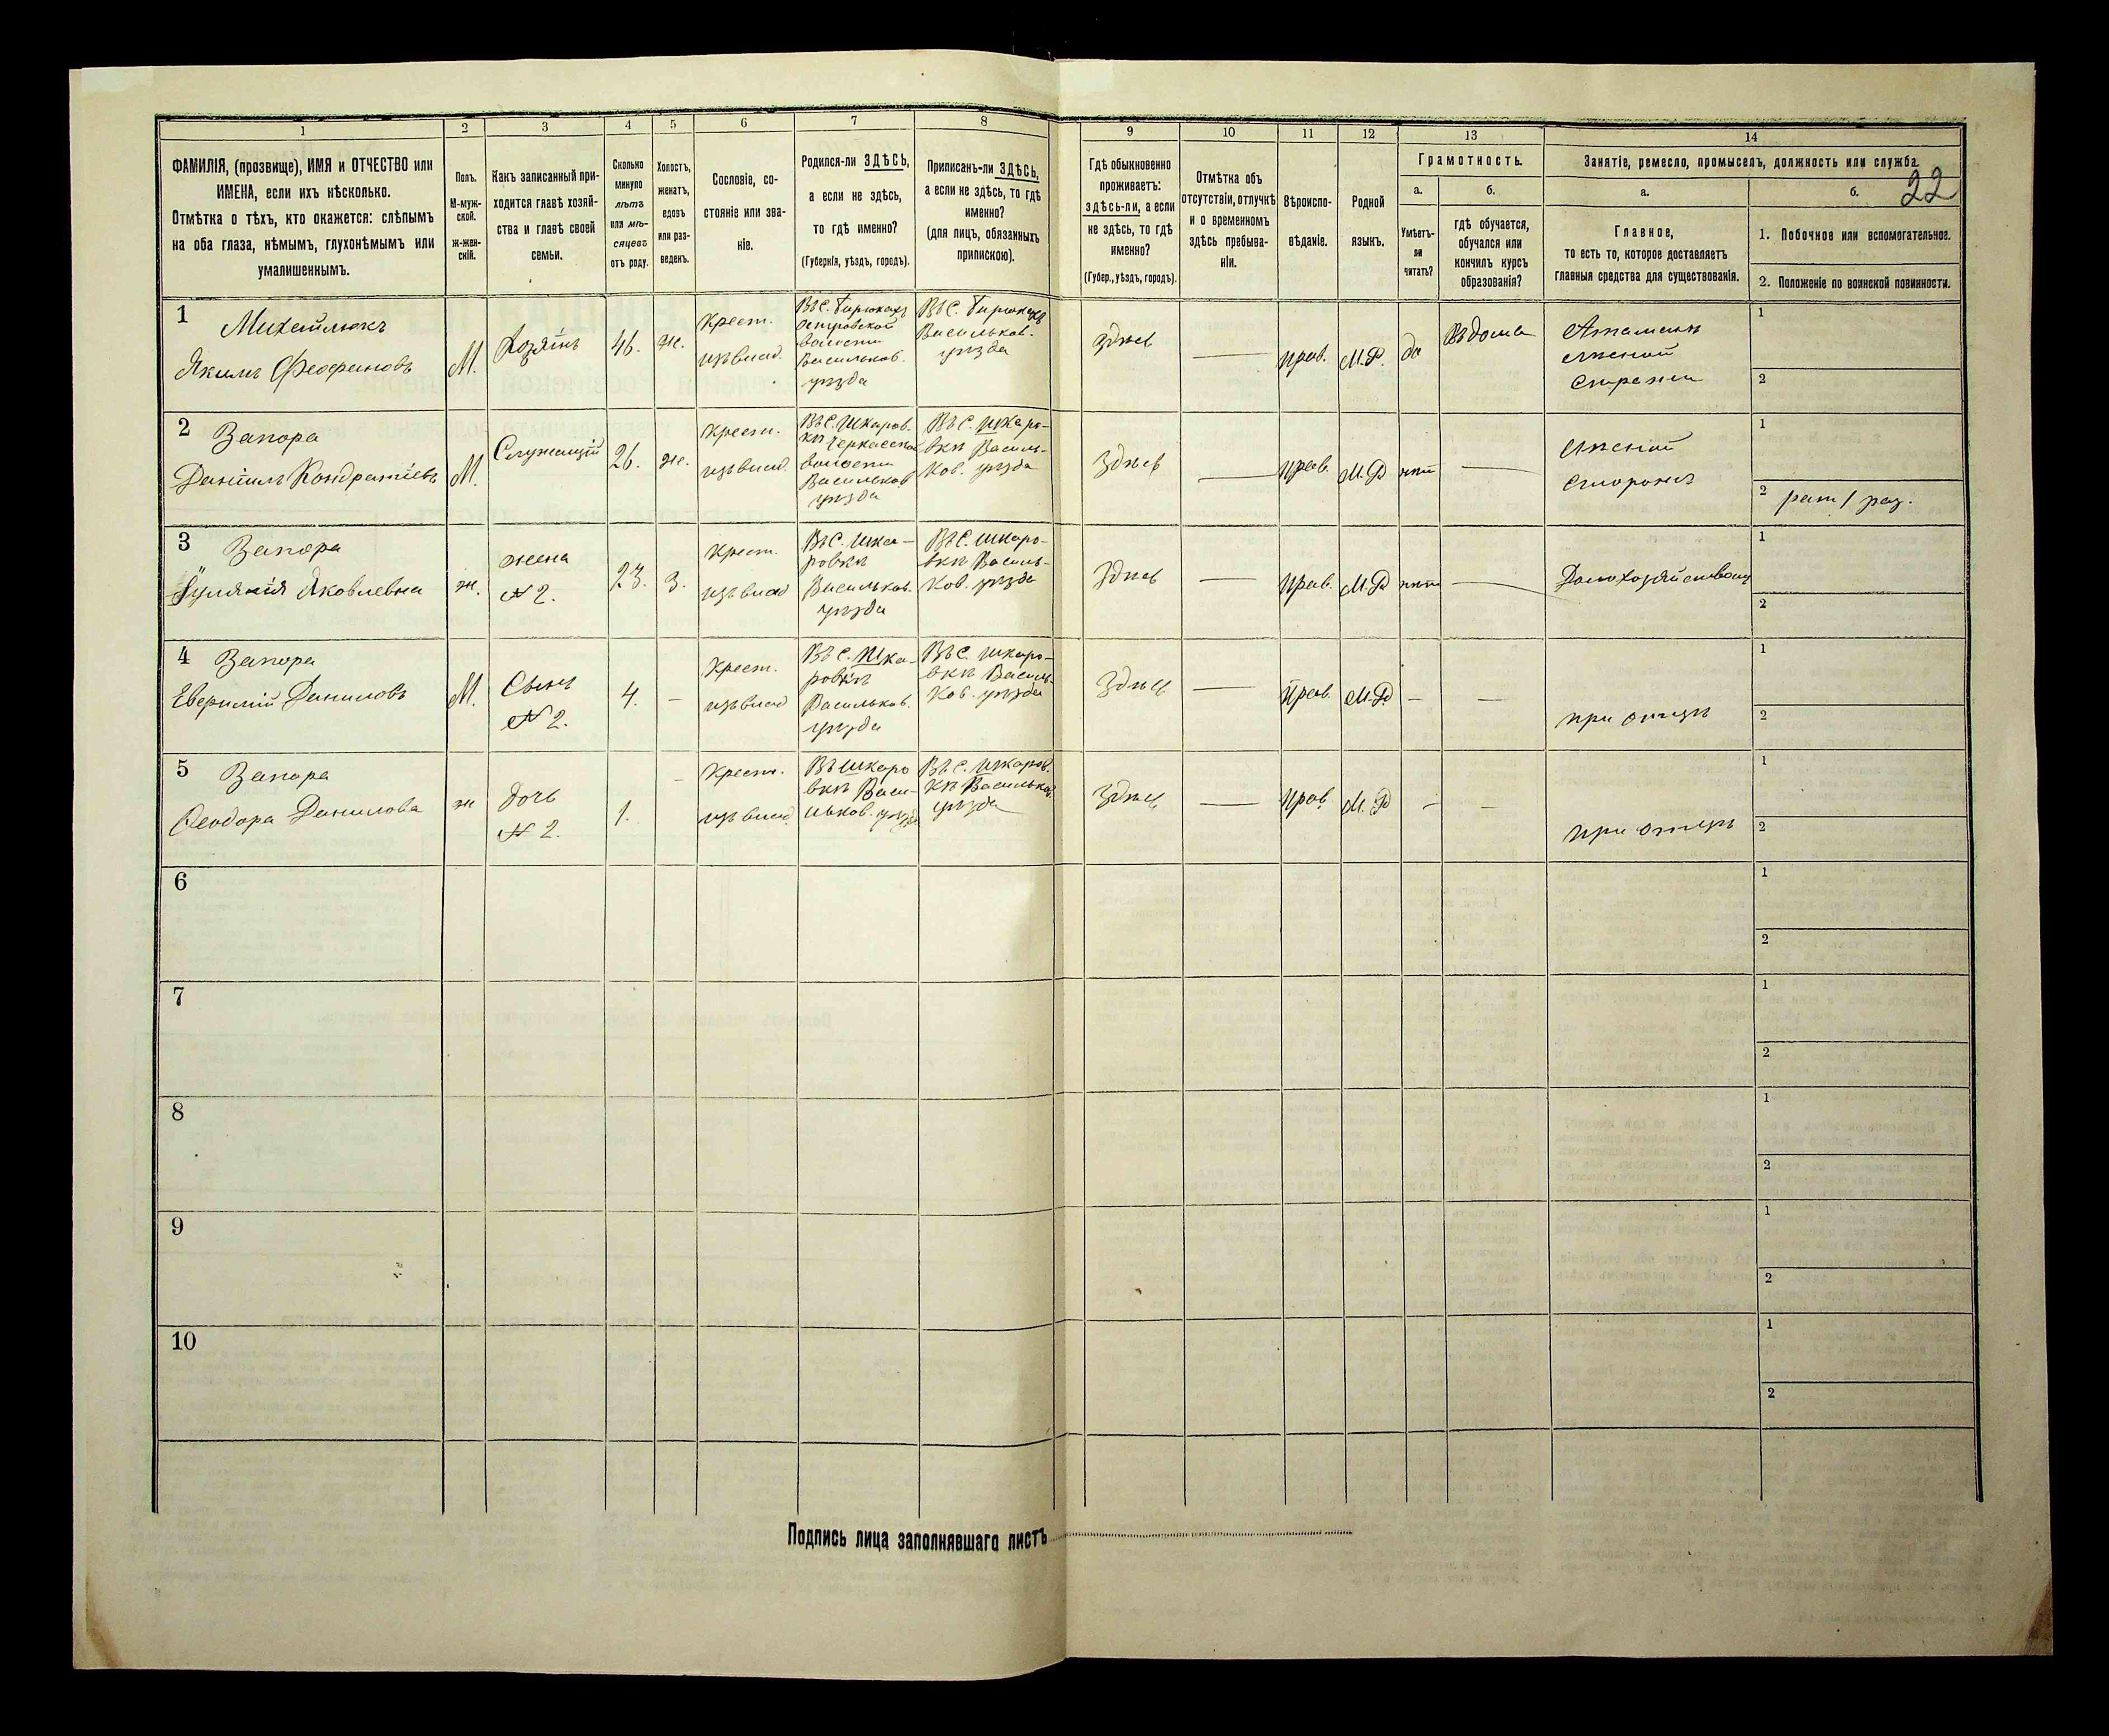 1 2 3 4 5 6 7 8 9 10 11 12 13 14
ФАМИЛІЯ, (прозвище), ИМЯ и ОТЧЕСТВО или
ИМЕНА, если ихъ нѣсколько.
Отмѣтка о тѣхъ, кто окажется: слѣпымъ
на оба глаза, нѣмымъ, глухонѣмымъ или
умалишеннымъ.
Полъ.
М-муж-
ской.
ж-жен-
скій.
Какъ записанный при-
ходится главѣ хозяй-
ства и главѣ своей
семьи.
Сколько
минуло
лѣтъ
или мѣ-
сяцевъ
отъ роду.
Холостъ,
женатъ,
вдовъ
или раз-
веденъ.
Сословіе, со-
стояніе или зва-
ніе.
Родился-ли ЗДѢСЬ,
а если не здѣсь,
то гдѣ именно?
(Губернія, уѣздъ, городъ).
Приписанъ-ли ЗДѢСЬ,
а если не здѣсь, то гдѣ
именно?
(для лицъ, обязанныхъ
припискою).
Гдѣ обыкновенно
проживаетъ:
здѣсь-ли, а если
не здѣсь, то гдѣ
именно?
(Губер., уѣздъ, городъ).
Отмѣтка объ
отсутствіи, отлучкѣ
и о временномъ
здѣсь пребыва-
ніи.
Вѣроиспо-
вѣданіе.
Родной
языкъ.
Грамотность.
а.
Умѣетъ-
ли
читать?
б.
гдѣ обучается,
обучался или
кончилъ курсъ
образованія?
Занятіе, ремесло, промыселъ, должность или служба.
22
а.
Главное,
то есть то, которое доставляетъ
главныя средства для существованія.
б.
1. Побочное или вспомогательное.
2. Положеніе по воинской повинности.
1
Михайлюкъ
Якимъ Феофановъ
М.
Хозяинъ
46.
ж.
Крест.
изъ влад.
Въ С.
Островской
волости
Васильков.
уѣзда
Въ С.
Васильков.
уѣзда
здѣсь
прав.
М.Р.
да
Въ дома
Атаманъ
лѣсной
стражи
1
2
2
Запора
Даніилъ Кондратіевъ
М.
Служащій
26.
ж.
Крест.
изъ влад.
Въ С. Шкаров.
кѣ Черкасской
волости
Васильков
уѣзда
Въ С. Шкаро-
вкѣ Василь-
ков. уѣзда
здѣсь
прав.
М.Р
нѣт
Лѣсной
сторожъ
1
2 рат 1 раз.
3
Запора
Яковлевна
ж.
жена
№ 2.
23.
з.
Крест.
изъ влад
Въ С. Шка-
ровкѣ
Васильков.
уѣзда
Въ С. Шкаро-
вкѣ Василь-
ков. уѣзда
здѣсь
прав.
М.Р
нѣт
Домохозяйство
1
2
4
Запора
Данилов
М.
Сынъ
№ 2.
4.
Крест.
изъ влад
Въ С. Шка-
ровкѣ
Васильков.
уѣзда
Въ С. Шкаро-
вкѣ Василь-
ков. уѣзда
здѣсь
прав.
М.Р.
при отцѣ
1
2
5
Запора
Феодора Данилова
ж
дочь
№ 2.
1.
Крест.
изъ влад.
Въ Шкаро
вкѣ Васи-
льков. уѣзда
Въ С. Шкаров.
кѣ Васильков.
уѣзда
здѣсь
прав.
М.Р
при отцѣ
1
2
6
1
2
7
1
2
8
1
2
9
1
2
10
1
2
Подпись лица заполнявшаго листъ